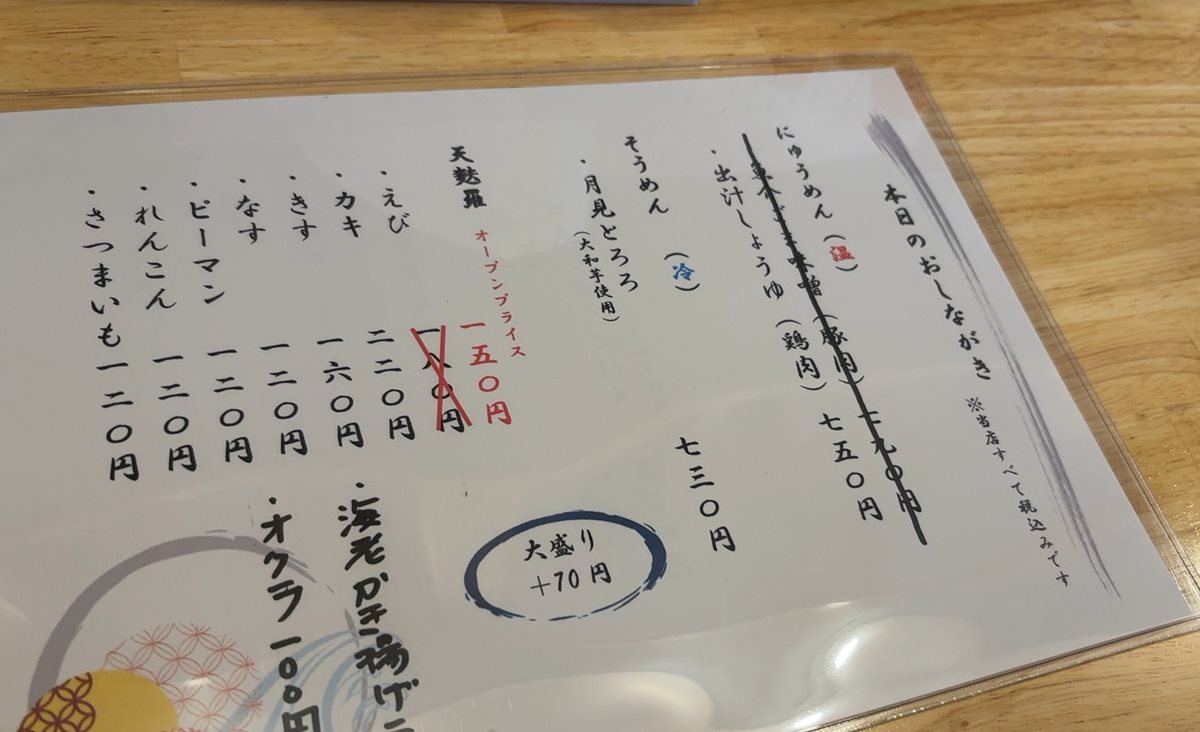 本日のおしながき ※当店すべて税込みです
にゅうめん（温）
ごま味噌（豚肉） 七九〇円
・出汁しょうゆ（鶏肉） 七五〇円
そうめん （冷）
・月見とろろ（大和芋使用） 七三〇円
大盛り
＋70円
天麩羅
オープンプライス
一五〇円
・えび 一八〇円
・カキ 二二〇円
・きす 一六〇円
・なす 一二〇円
・ピーマン 一二〇円
・れんこん 一二〇円
・さつまいも 一二〇円
・海老かき揚げ
・オクラ 一〇〇円